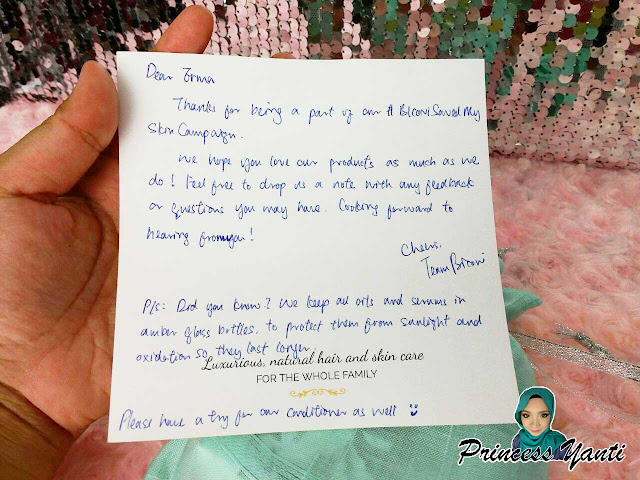 Dear Erma
Thanks for being a part of our #BiconiSavedMy
Skin Campaign.
We hope you love our products as much as we
do! Feel free to drop us a note with any feedback
or questions you may have. Looking forward to
hearing from you!
Cheers,
Team Biconi
P/s: Did you know? We keep all oils and serums in
amber glass bottles, to protect them from sunlight and
oxidation so they last longer.
Luxurious, natural hair and skin care
FOR THE WHOLE FAMILY
Please have a try for our conditioner as well
Princess Yanti